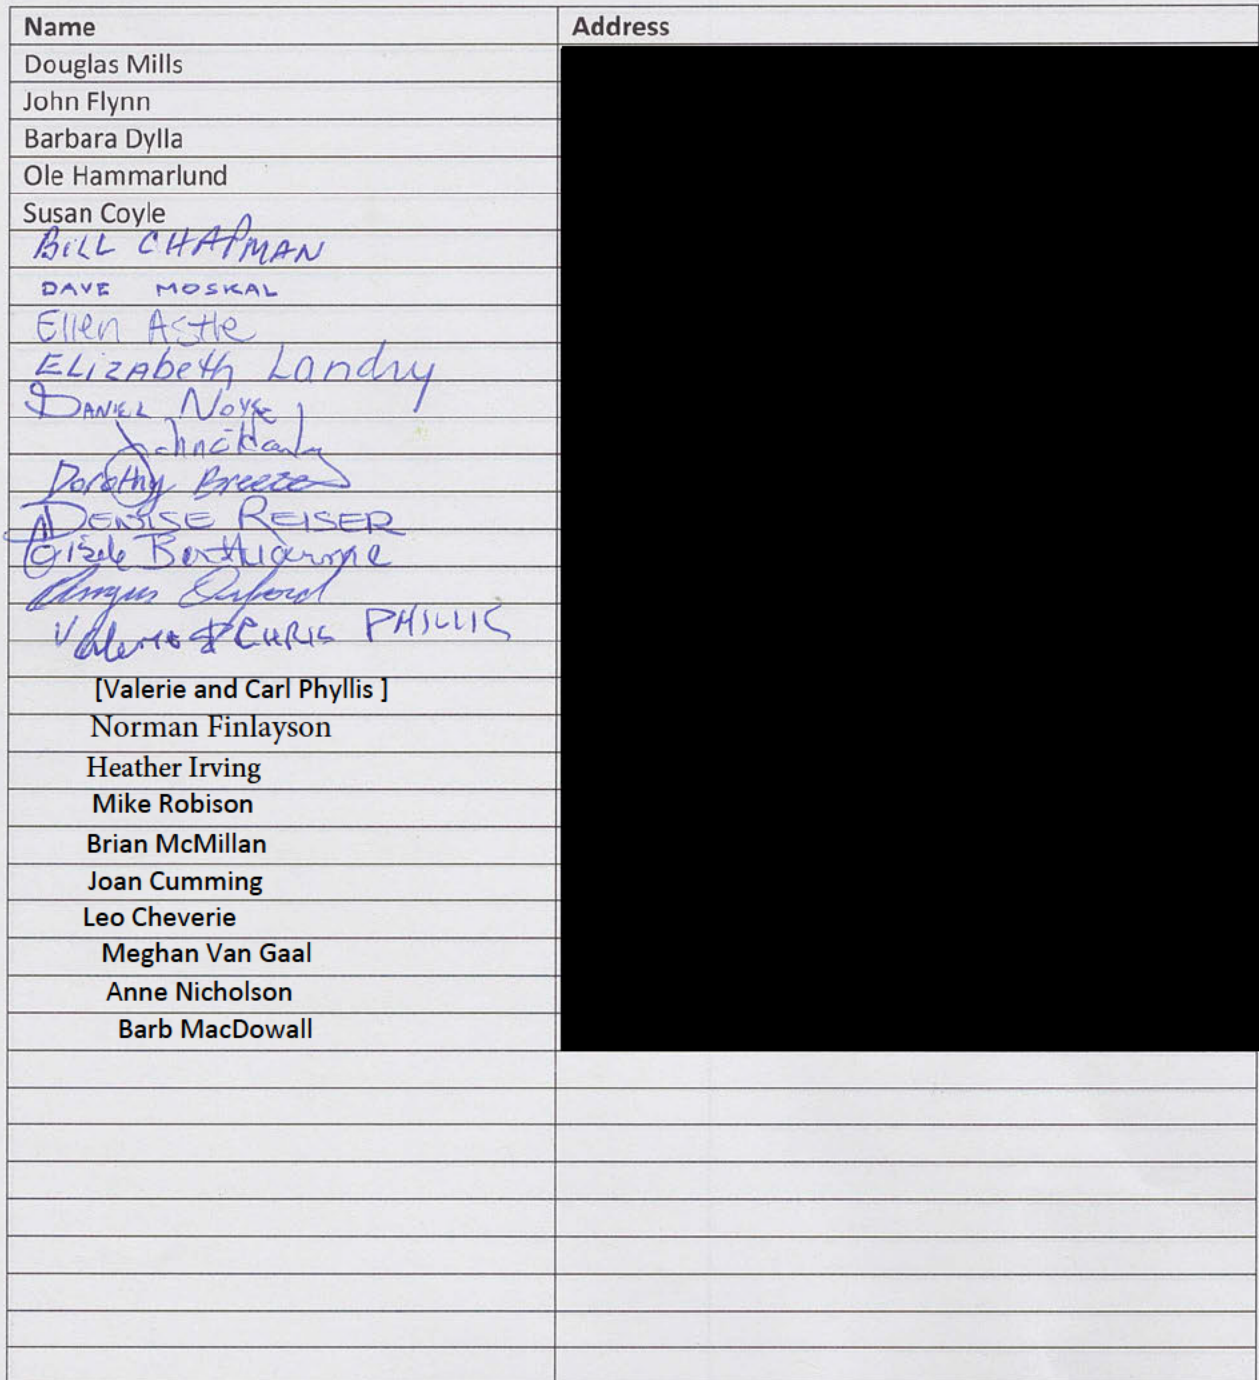 Name Address
Douglas Mills
John Flynn
Barbara Dylla
Ole Hammarlund
Susan Coyle
BILL CHAPMAN
DAVE MOSKAL
Ellen Astle
ELizAbeth Landry
DANIEL Noye
Dorothy Breeze
DENISE REISER
Angus Orford
Valerie & CHRIS PHILLIS
[Valerie and Carl Phyllis ]
Norman Finlayson
Heather Irving
Mike Robison
Brian McMillan
Joan Cumming
Leo Cheverie
Meghan Van Gaal
Anne Nicholson
Barb MacDowall